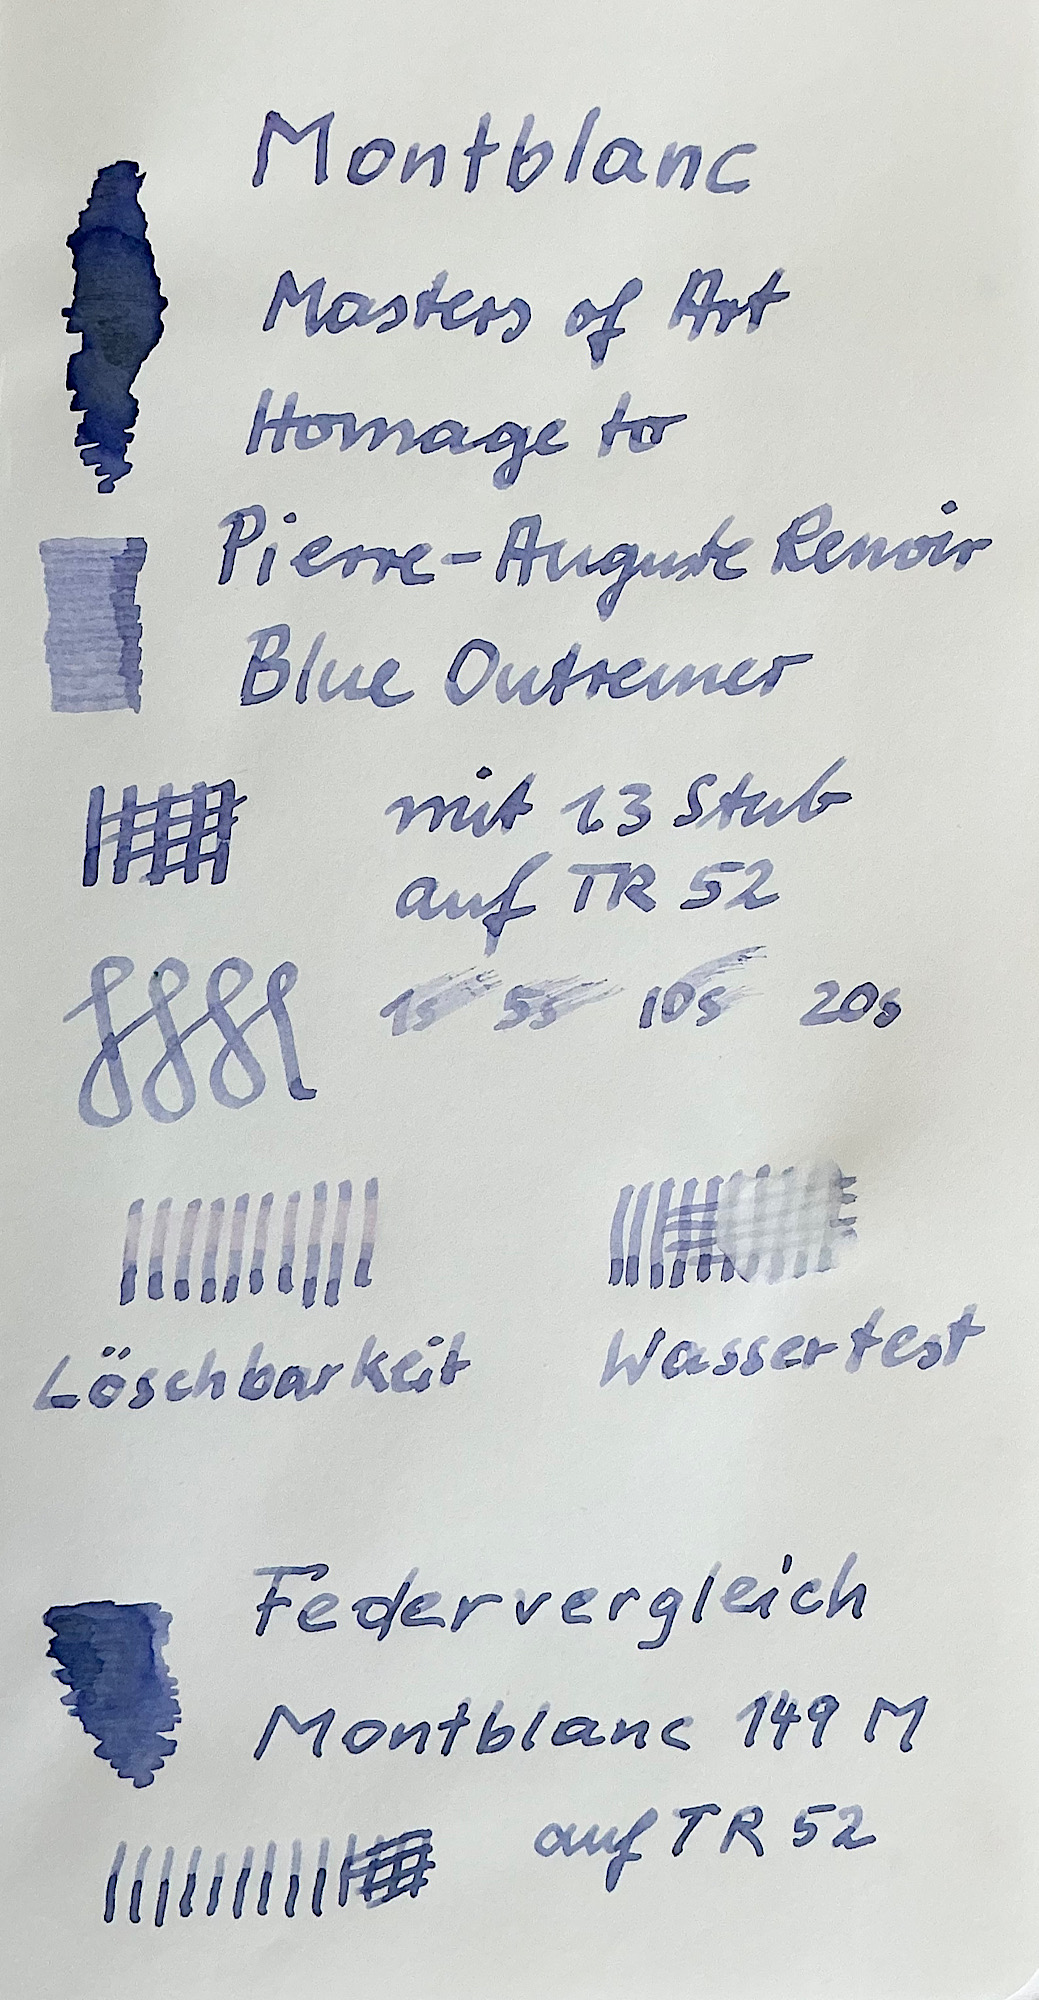 Montblanc
Masters of Art
Homage to
Pierre-Auguste Renoir
Blue Outremer
mit 1.3 Stub
auf TR 52
1s 5s 10s 20s
Löschbarkeit Wassertest
Federvergleich
Montblanc 149 M
auf TR 52